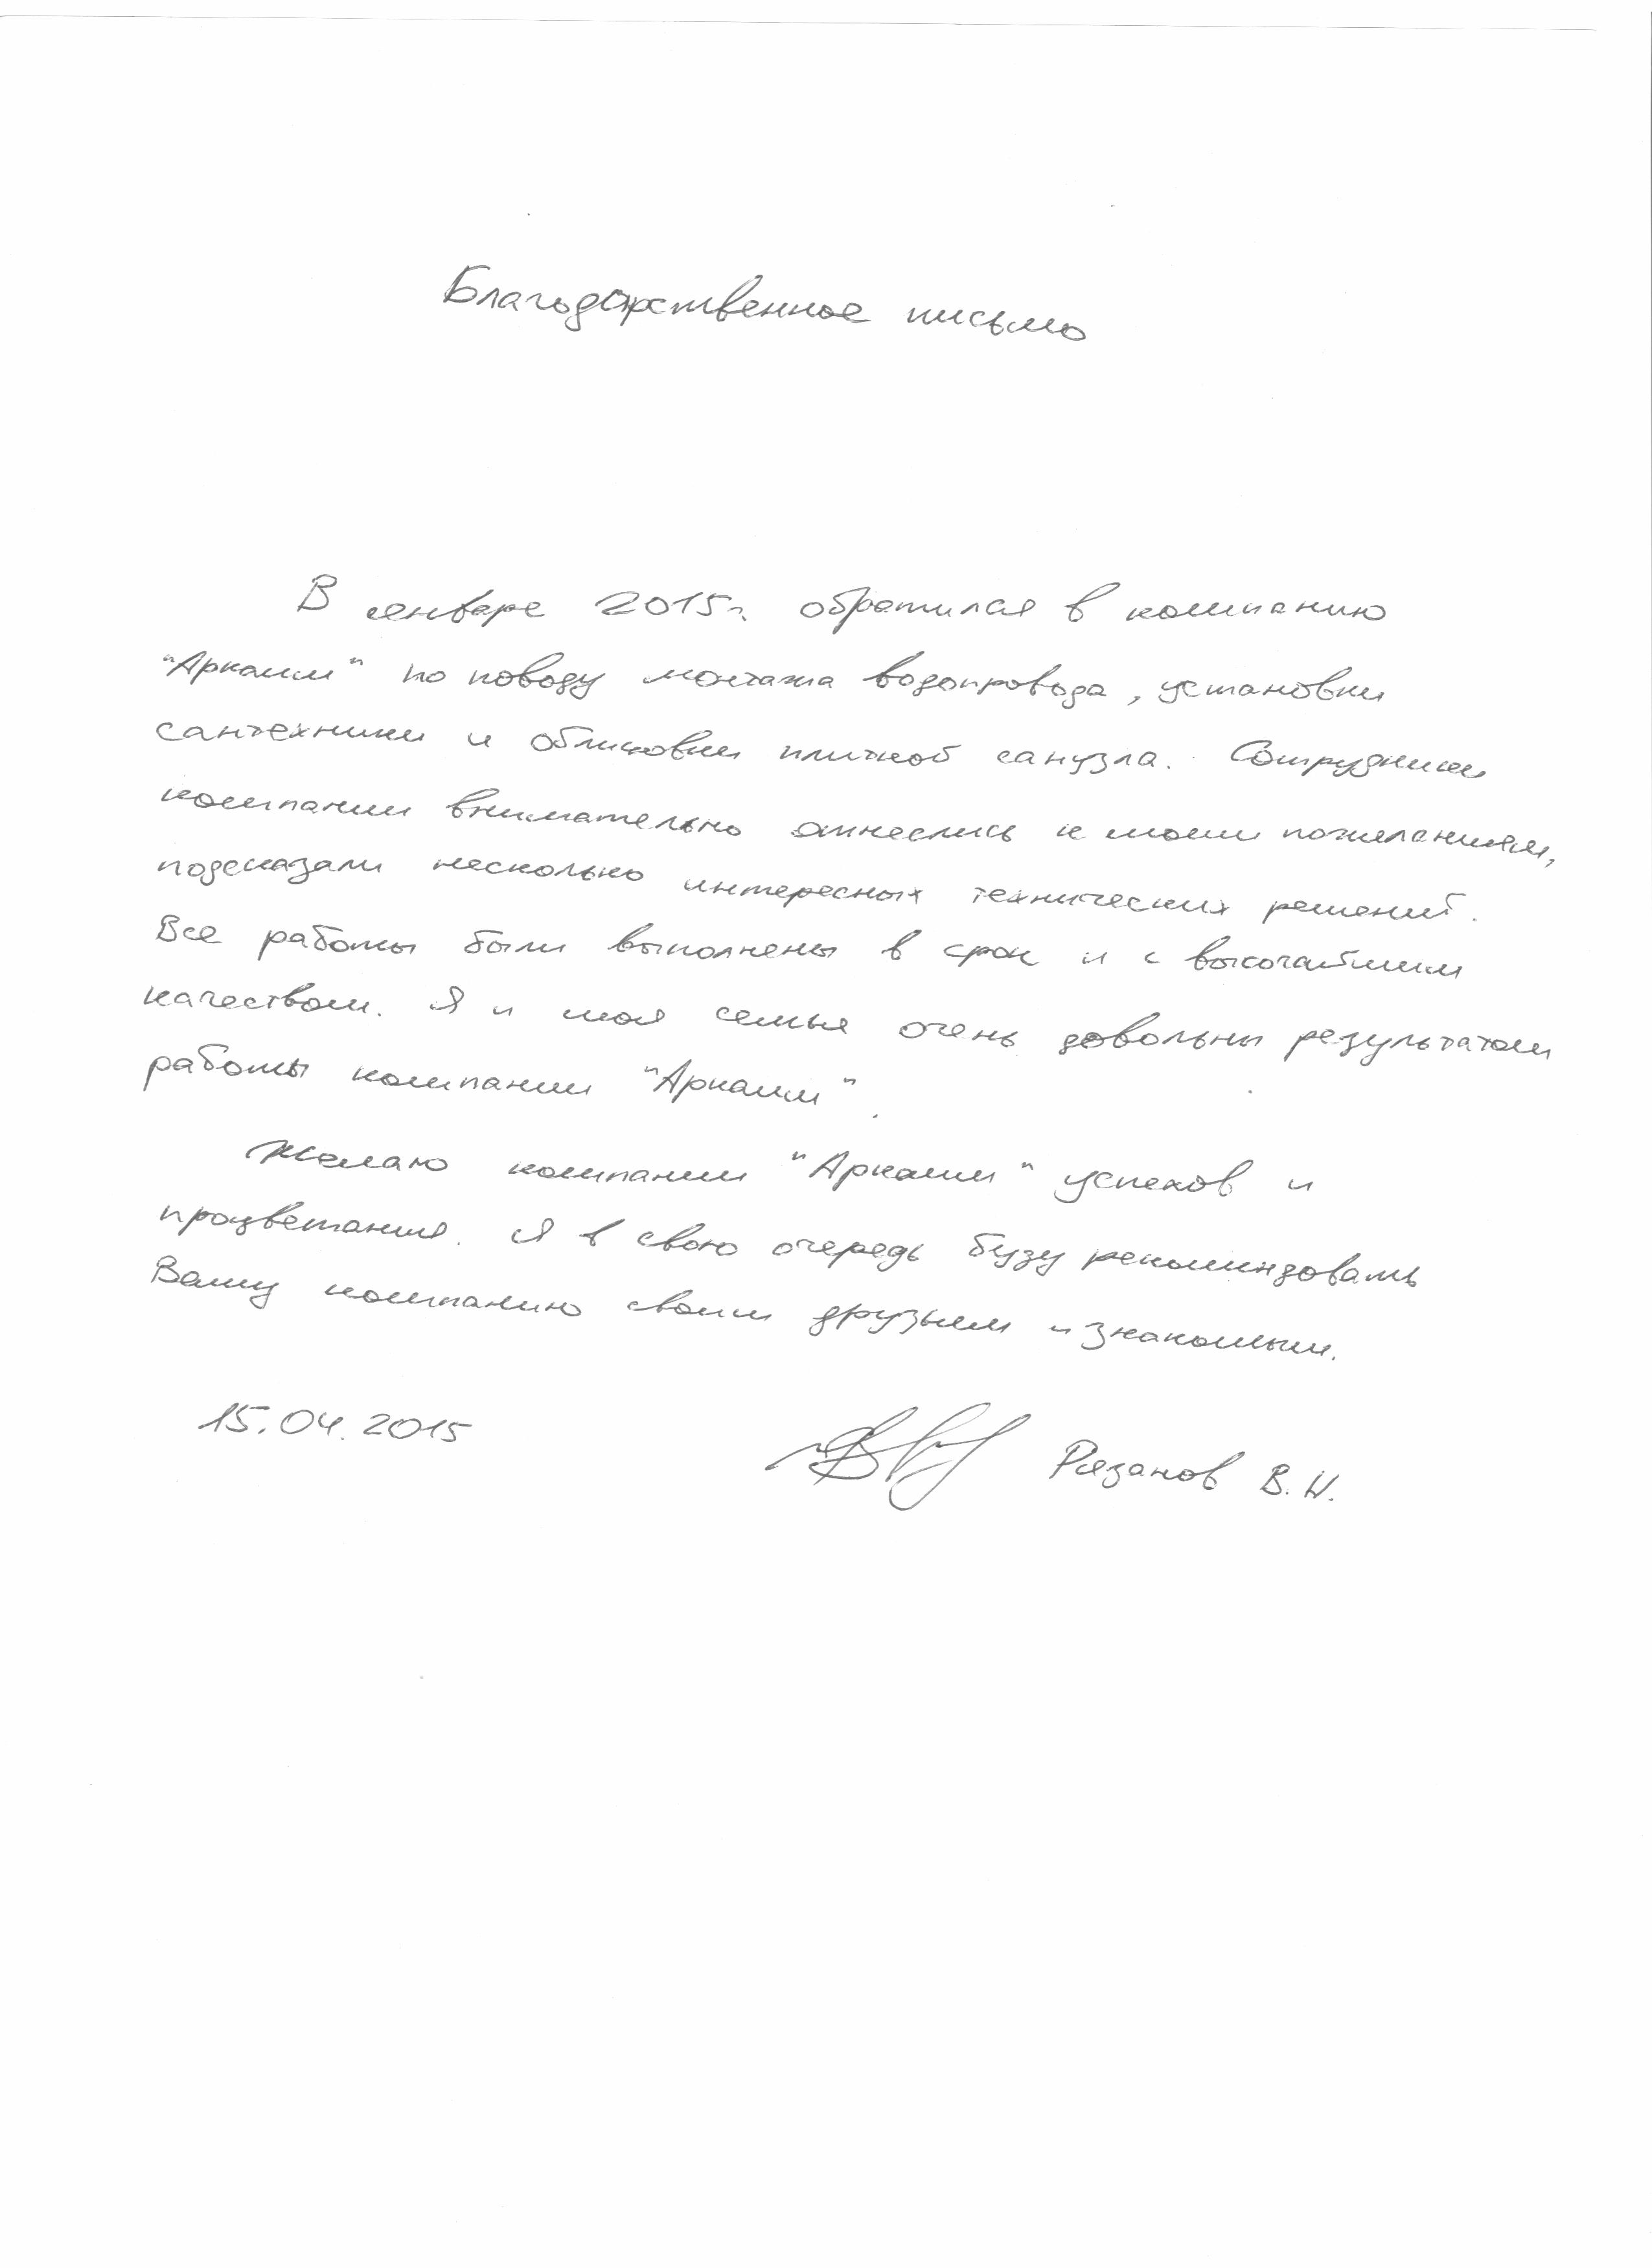 Благодарственное письмо
В январе 2015г. обратился в компанию
"Аркаим" по поводу монтажа водопровода, установки
сантехники и облицовки плиткой санузла. Сотрудники
компании внимательно отнеслись к моим пожеланиям,
подсказали несколько интересных технических решений.
Все работы были выполнены в срок и с высочайшим
качеством. Я и моя семья очень довольны результатом
работы компании "Аркаим".
Желаю компании "Аркаим" успехов и
процветания. Я в свою очередь буду рекоминдовать
Вашу компанию своим друзьям и знакомым.
15.04.2015 Рязанов В.И.